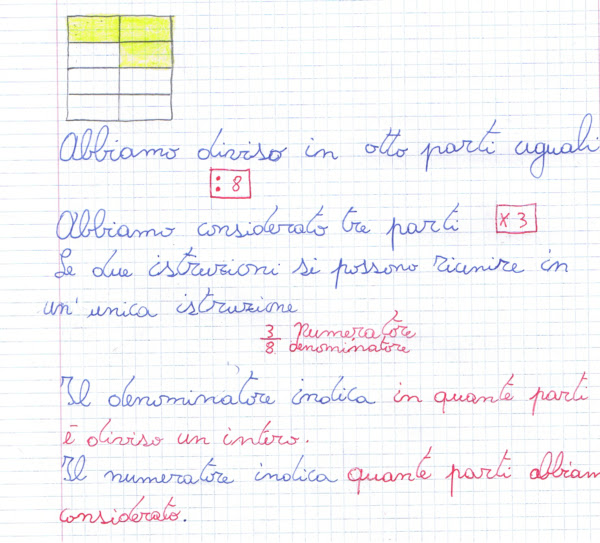 Abbiamo diviso in otto parti uguali
: 8
Abbiamo considerato tre parti x 3
Le due istruzioni si possono riunire in
un'unica istruzione
3 Numeratore
8 denominatore
Il denominatore indica in quante parti
è diviso un intero.
Il numeratore indica quante parti abbiam
considerato.